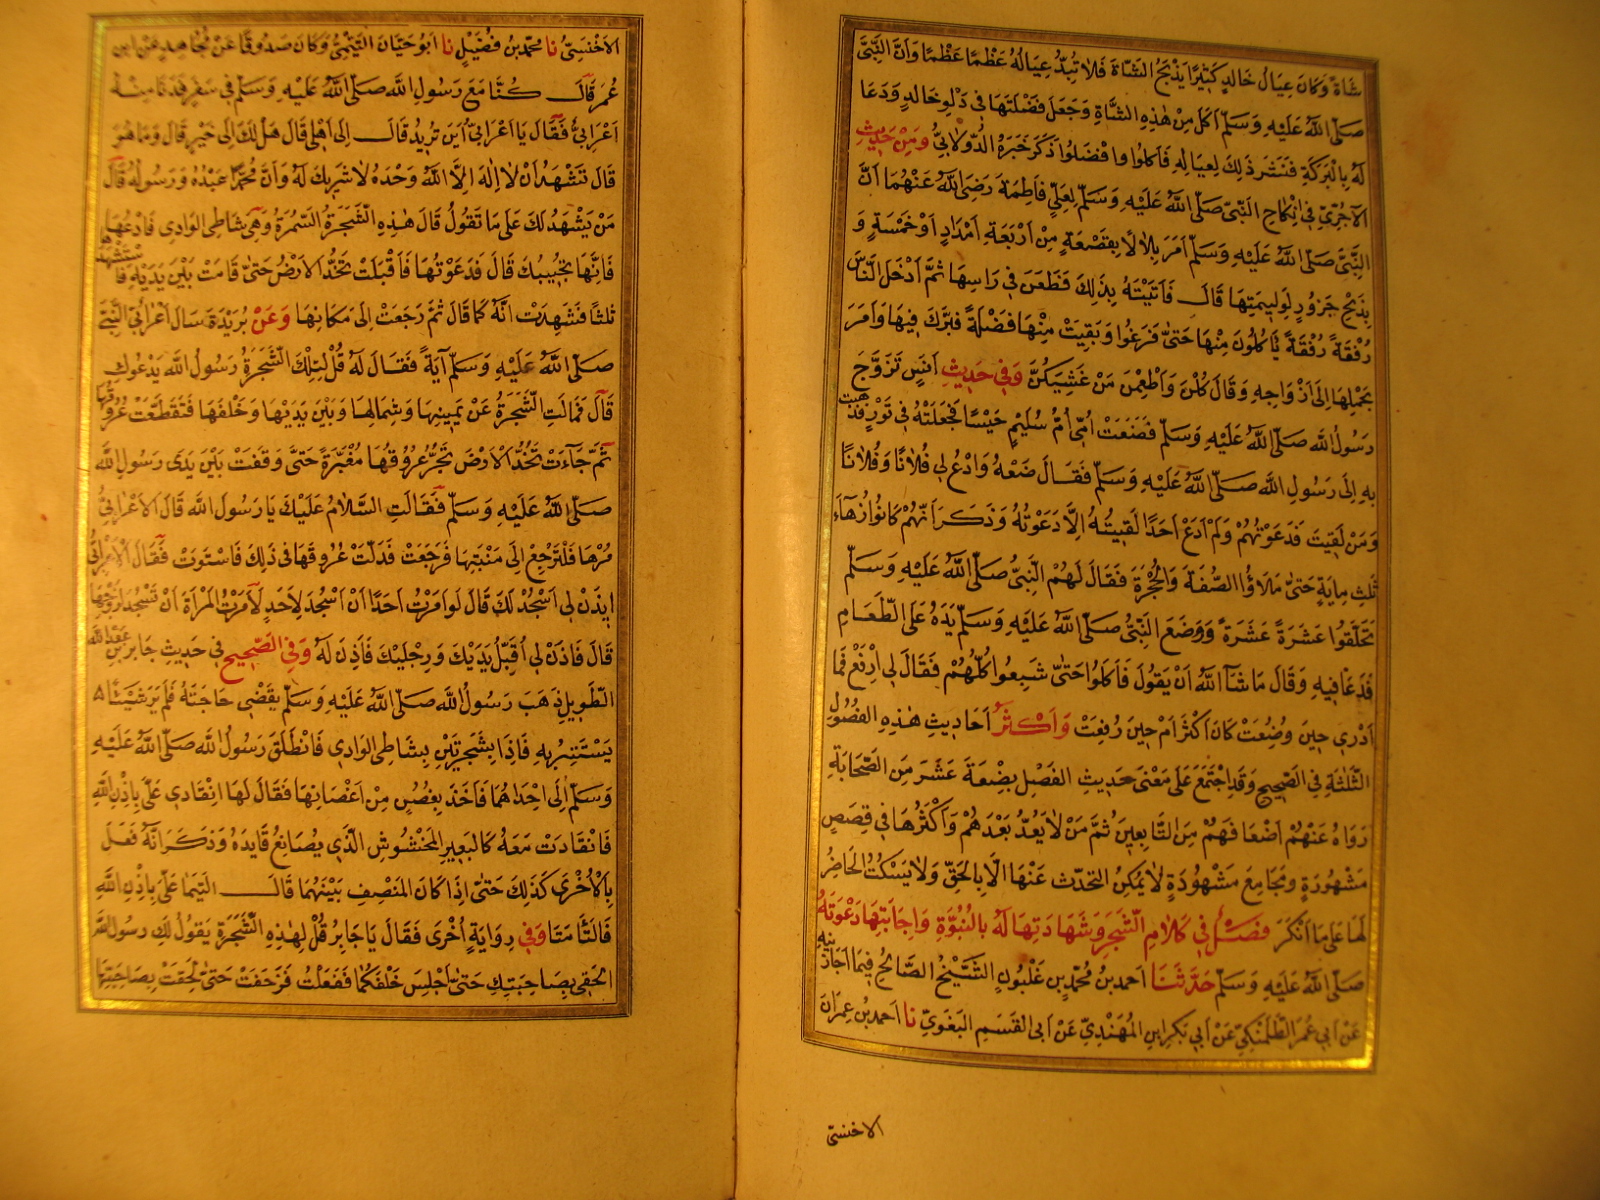 شاة وكان عيال خالد كثيرا يذبح الشاة فلا تبد عياله عظما عظما وان النبي
صلى الله عليه وسلم اكل من هذه الشاة وجعل فضلتها في دلو خالد ودعا
له بالبركة فنثر ذلك لعياله فاكلوا وافضلوا ذكر خبره الدولابي ومن حديث
الآجري في انكاح النبي صلى الله عليه وسلم لعلي فاطمة رضي الله عنهما ان
النبي صلى الله عليه وسلم امر بلالا بقصعة من اربعة امداد او خمسة و
يذبح جزور لوليمتها قال فاتيته بذلك فطعن في راسها ثم ادخل الناس
رفقة رفقة ياكلون منها حتى فرغوا وبقيت منها فضلة فبرك فيها وامر
بحملها الى ازواجه وقال كلن واطعمن من غشيكن وفي حديث انس تزوج
رسول الله صلى الله عليه وسلم فصنعت امي ام سليم حيسا فجعلته في تور فذهبت
به الى رسول الله صلى الله عليه وسلم فقال ضعه وادع لي فلانا وفلانا
ومن لقيت فدعوتهم ولم ادع احدا لقيته الا دعوته وذكر انهم كانوا زهآء
ثلث ماية حتى ملاؤا الصفة والحجرة فقال لهم النبي صلى الله عليه وسلم
تحلقوا عشرة عشرة ووضع النبي صلى الله عليه وسلم يده على الطعام
فدعا فيه وقال ما شآ الله ان يقول فاكلوا حتى شبعوا كلهم فقال لي ارفع فما
ادري حين وضعت كان اكثر ام حين رفعت واكثر احاديث هذه الفصول
الثلثة في الصحيح وقد اجتمع على معنى حديث الفصل بضعة عشر من الصحابة
رواه عنهم اضعافهم من التابعين ثم من لا يعد بعدهم واكثرها في قصص
مشهورة ومجامع مشهودة لا يمكن التحدث عنها الا بالحق ولا يسكت الحاضر
لها على ما انكر فصل في كلام الشجر وشهادتها له بالنبوة واجابتها دعوته
صلى الله عليه وسلم حدثنا احمد بن محمد بن غلبون الشيخ الصالح فيما اجازنيه
عن ابي عمر الطلمنكي عن ابي بكر ابن المهندي عن ابي القسم البغوي نا احمد بن عمران
الاخنسي
الاخنسي نا محمد بن فضيل نا ابو حيان التيمي وكان صدوقا عن مجاهد عن ابن
عمر قال كنا مع رسول الله صلى الله عليه وسلم في سفر فدنا منه
اعرابي فقال يا اعرابي اين تريد قال الى اهلي قال هل لك الى خير قال وما هو
قال تشهد ان لا اله الا الله وحده لا شريك له وان محمدا عبده ورسوله قال
من يشهد لك على ما تقول قال هذه الشجرة السمرة وهي بشاطي الوادي فادعها
فانها تجيبك قال فدعوتها فاقبلت تخد الارض حتى قامت بين يديه فاستشهدها
ثلثا فشهدت انه كما قال ثم رجعت الى مكانها وعن بريدة سال اعرابي النبي
صلى الله عليه وسلم آية فقال له قل لتلك الشجرة رسول الله يدعوك
قال فمالت الشجرة عن يمينها وشمالها وبين يديها وخلفها فتقطعت عروقها
ثم جآءت تخد الارض تجر عروقها مغبرة حتى وقفت بين يدى رسول الله
صلى الله عليه وسلم فقالت السلام عليك يا رسول الله قال الاعرابي
مرها فلترجع الى منبتها فرجعت فدلت عروقها في ذلك فاستوت فقال الاعرابي
ايذن لي اسجد لك قال لو امرت احدا ان اسجد لاحد لامرت المراة ان تسجد لزوجها
قال فاذن لي اقبل يديك ورجليك فاذن له وفي الصحيح في حديث جابر بن عبد الله
الطويل ذهب رسول الله صلى الله عليه وسلم يقضي حاجته فلم ير شيئا
يستتر به فاذا بشجرتين بشاطي الوادي فانطلق رسول الله صلى الله عليه
وسلم الى احداهما فاخذ بغصن من اغصانها فقال لها انقادي علي باذن الله
فانقادت معه كالبعير المخشوش الذي يصانع قايده وذكر انه فعل
بالاخرى كذلك حتى اذا كان المنصف بينهما قال التيما علي باذن الله
فالتامتا وفي رواية اخرى فقال يا جابر قل لهذه الشجرة يقول لك رسول الله
الحقي بصاحبتك حتى اجلس خلفكما ففعلت فزحفت حتى لحقت بصاحبتها